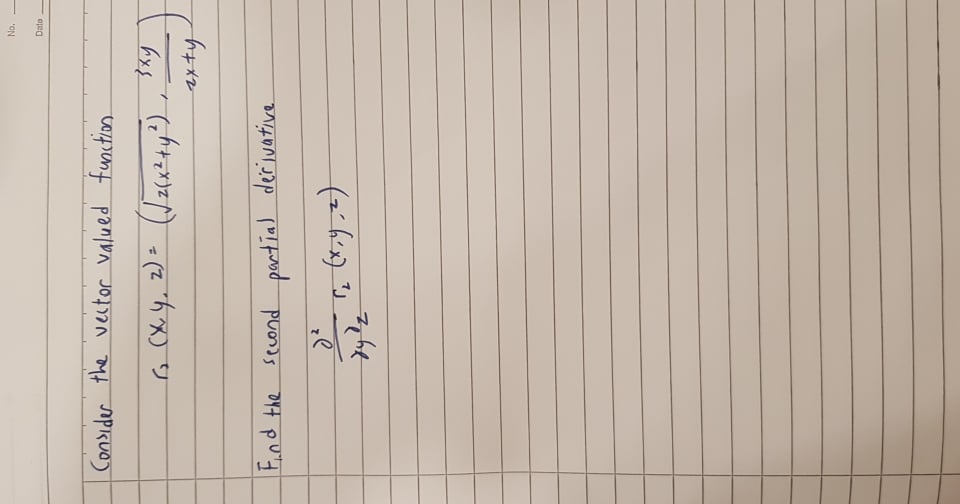 No.
Date
Consider the vector valued function
r₂ (x, y, z) = (√z(x²+y²), 3xy/zx+y)
Find the second partial derivative
∂²/∂y∂z r₂ (x, y, z)